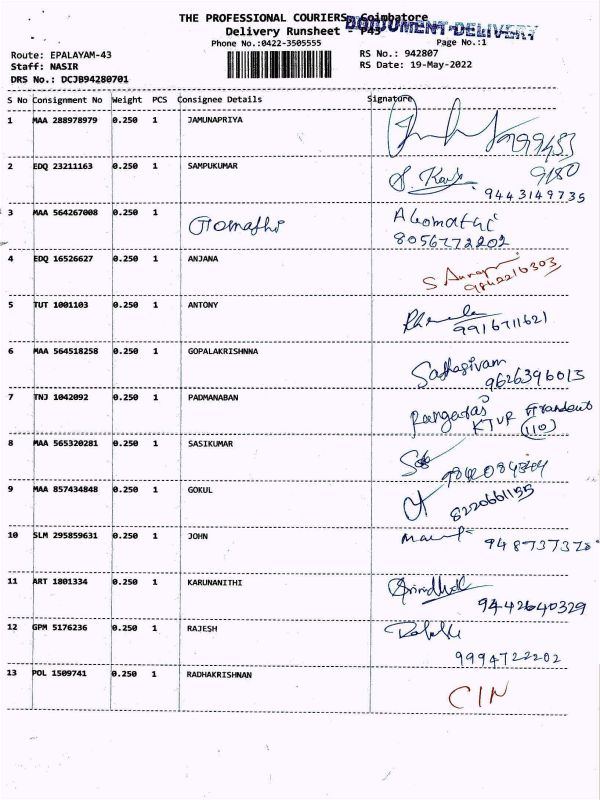 THE PROFESSIONAL COURIERS, Coimbatore
DOCUMENT-DELIVERY
Delivery Runsheet - P43
Phone No.:0422-3505555
Page No.:1
Route: EPALAYAM-43
RS No.: 942807
Staff: NASIR
RS Date: 19-May-2022
DRS No.: DCJB94280701
S No Consignment No Weight PCS Consignee Details Signature
1 MAA 288978979 0.250 1 JAMUNAPRIYA
2 EDQ 23211163 0.250 1 SAMPUKUMAR
9443149735
3 MAA 564267008 0.250 1 Gomathi
8056772202
4 EDQ 16526627 0.250 1 ANJANA
5 TUT 1001103 0.250 1 ANTONY
9916711621
6 MAA 564518258 0.250 1 GOPALAKRISHNNA Sadhasivam
9626396013
7 TNJ 1042092 0.250 1 PADMANABAN
KTVR
(110)
8 MAA 565320281 0.250 1 SASIKUMAR
9 MAA 857434848 0.250 1 GOKUL
8220661155
10 SLM 295859631 0.250 1 JOHN
11 ART 1801334 0.250 1 KARUNANITHI
9442640329
12 GPM 5176236 0.250 1 RAJESH
9994722202
13 POL 1509741 0.250 1 RADHAKRISHNAN